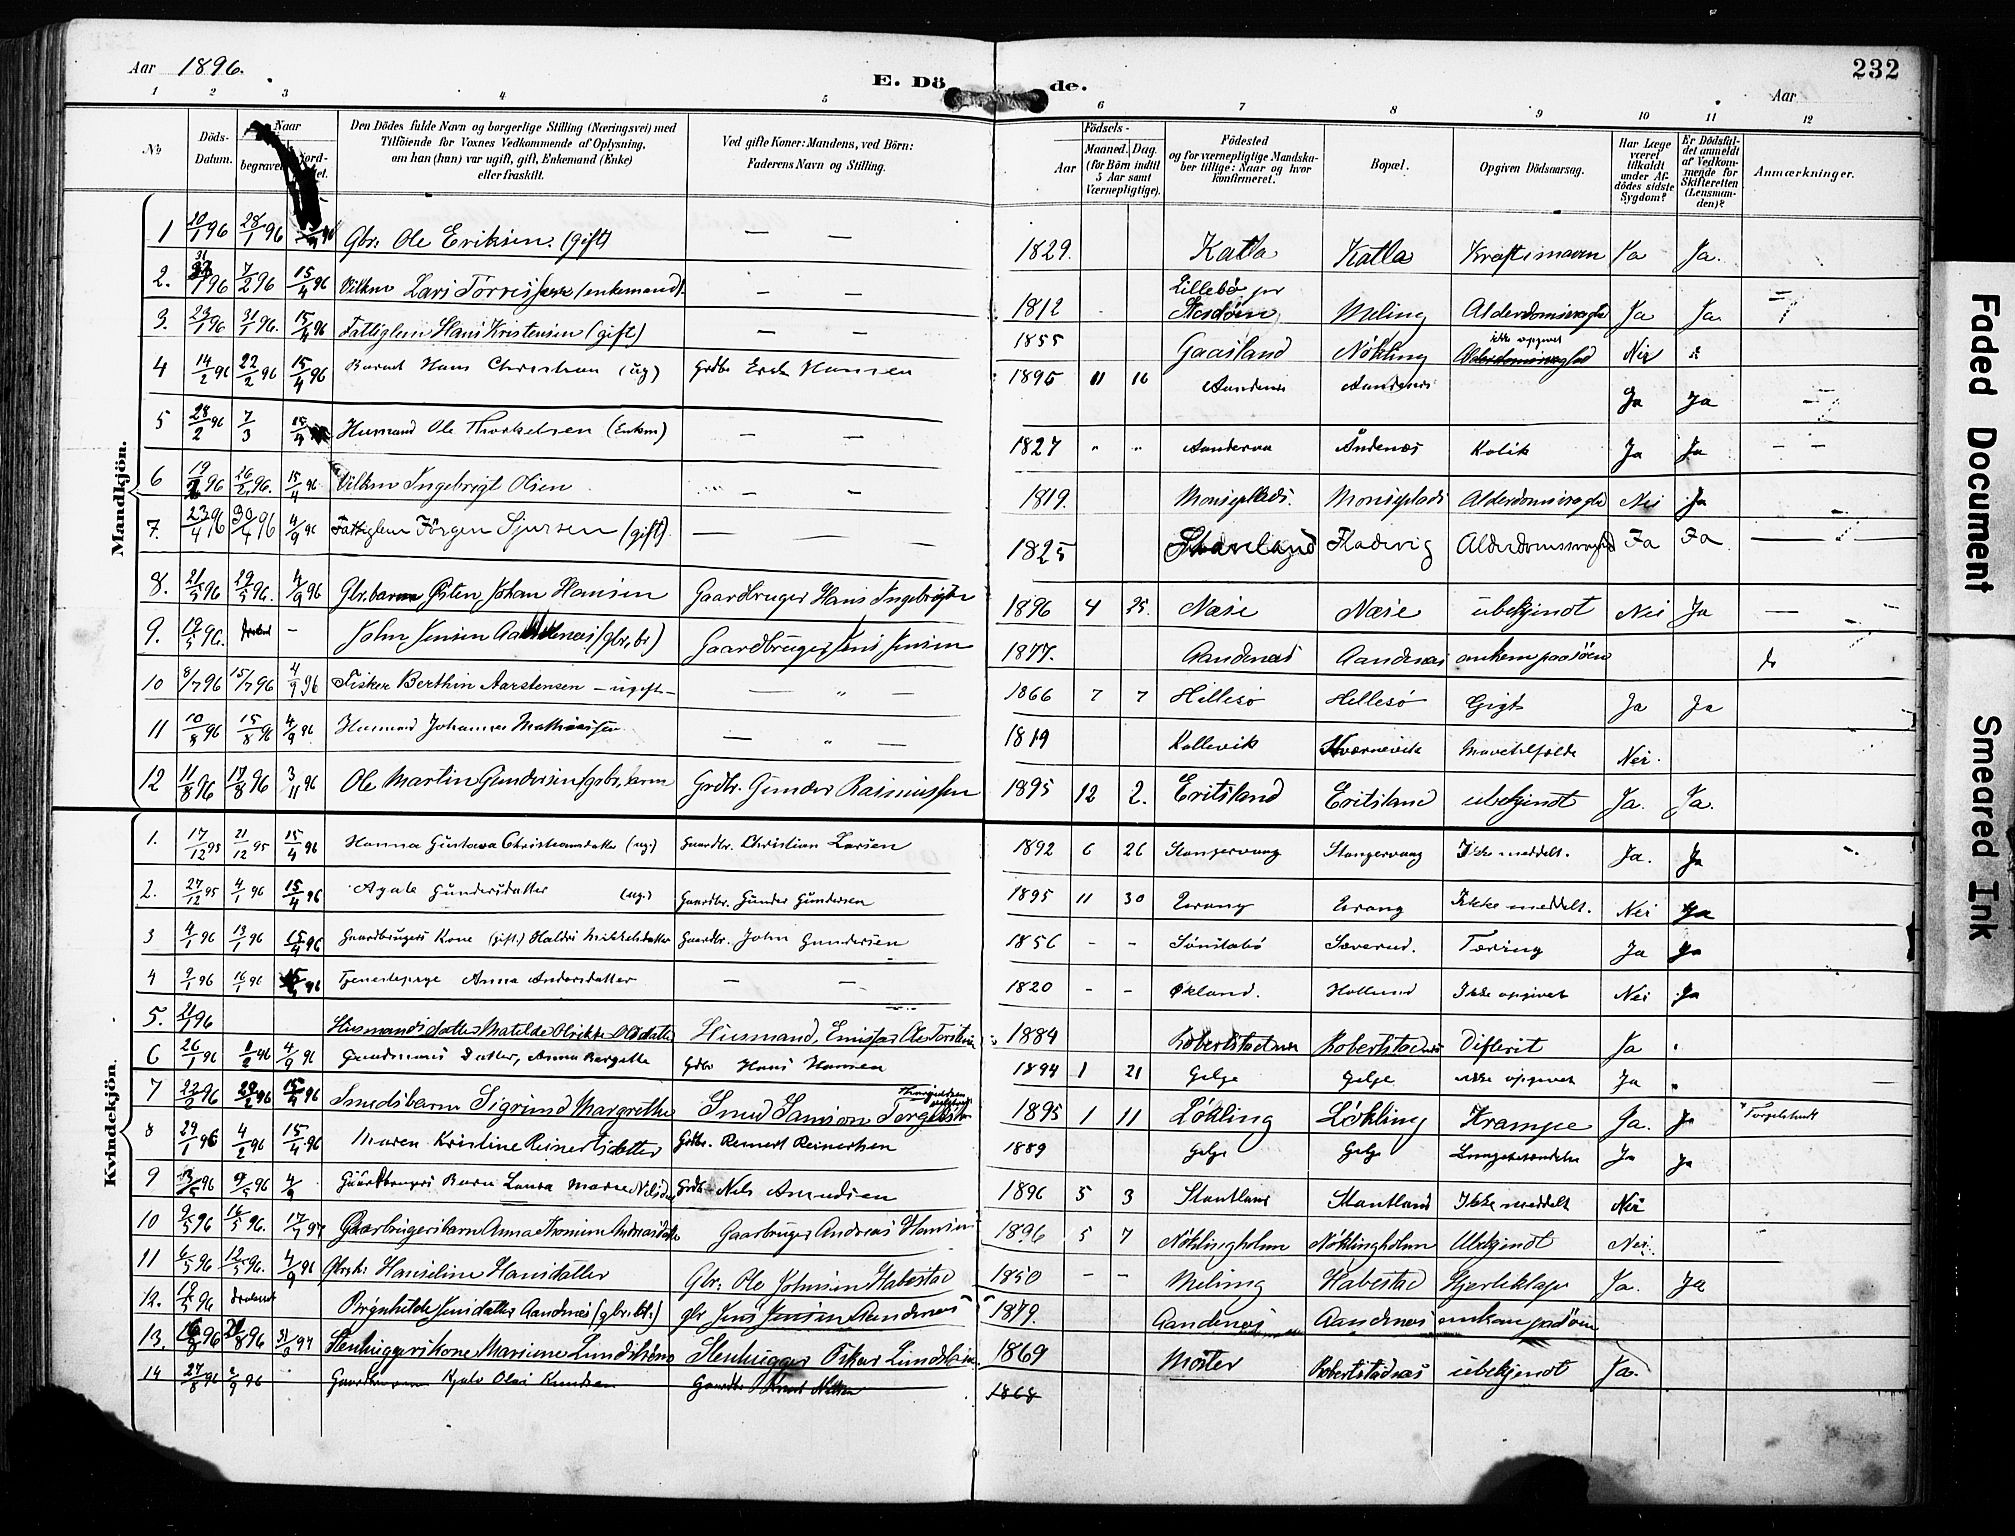 Aar 1896.
E. Dö de.
232
Aar
1 2 3 4 5 6 7 8 9 10 11 12
No
Döds-Datum.
Naar
begravet
Den Dödes fulde Navn og borgerlige Stilling (Næringsvei) med Tilföiende for Voxnes Vedkommende af Oplysning, om han (hun) var ugift, gift, Enkemand (Enke) eller fraskilt.
Ved gifte Koner: Mandens, ved Börn: Faderens Navn og Stilling.
Födsels-
Aar
Maaned. Dag.
(for Börn indtil 5 Aar samt Værnepligtige).
Födested
og for værnepligtige Mandskaber tillige: Naar og hvor konfirmeret.
Bopæl.
Opgiven Dödsaarsag.
Har Læge været tilkaldt under Afdödes sidste Sygdom?
Er Dödsfaldet anmeldt af Vedkommende for Skifteretten (Lensmanden)?
Anmærkninger.
Mandkjön.
1 20/1 96 28/1 96 Gbr. Ole Eriksen. (gift) — — 1829. Katla Katla Ja Ja.
2. 31/1 96 7/2 96 15/4 96 Vilkm Lars (enkemand) — — 1812 Lillebö Meling Alderdomssvaghed Ja Ja
3. 23/1 96 31/1 96. 15/4 96 Fattiglem Hans Kristensen (gift) — — 1855 Gaasland Nökling ikke opgivet Nei
4 14/2 96 22/2 96 15/4 96 Barnet Hans Christian (ug) Grdbr Erik Hansen 1895 11 16 Aandenes Aandenes Ja Ja
5 28/2 96 7/3 15/4 Husmand Ole Thorkelsen (Enkm) — — 1827 " " Andenæs Kolik Ja Ja
6 26/2 96. 15/4 96 Vilkm Ingebrigt Olsen — — 1819. Monseplads. Monseplads Alderdomssvaghed Nei Ja
7. 23/4 96 30/4 96 4/9 96 Fattiglem Jörgen Sjursen (gift). — — 1825 Fladevig Alderdomssvaghed Ja Ja
8. 21/5 96 29/5 96. 4/9 96 Gbr. barn Østen Johan Hansen Gaardbruger Hans Ingebrigtsen 1896 4 25. Næse Næse ubekjendt Nei Ja —
9. 19/5 96. — John Jensen Aandenæs (gbr. br) Gaardbruger Jens Jensen 1877. Aandenæs Aandenæs omkom paa söen
10 8/7 96 15/7 96 4/9 96 Fisker Berthin Aarstensen – ugift – — " — 1866 7 7 Hillesö Hillesö Gigt Ja Ja
11 10/8 96 15/8 96 4/9 96 Husmand Johannes Mathiassen — " — 1819 Kallevik Nei.
12 11/8 96 17/8 96 3/11 96 Ole Martin Gundersen (gbr. barn Grdbr. Gunder Rasmussen 1895 12 2. Eritsland Eritsland ubekjendt Ja. Ja.
Kvindekjön.
1. 17/12 95 21/12 95 15/4 96 Hanna Gustava Christiansdatter (ug.) Gaardbr. Christian Larsen 1892 6 26 Stangervaag Stangervaag Ikke meddelt. Ja. Ja
2. 27/12 95 4/1 96 15/4 96 Agate Gundersdatter (ug.) Gaardbr. Gunder Gundersen 1895 11 30 Urang Urang Ikke meddelt. Nei Ja
3 4/1 96 13/1 96 15/4 96 Gaardbrugers Kone (gift.) Haldri Mikkelsdatter Gaardbr. John Gundersen 1856 – – Sönstabö Sæverud. Tæring Ja Ja
4 9/1 96 16/1 96 15/4 96 Tjenestepige Anna Andersdatter — — 1820 – – Økland. Hollund Ikke opgivet Nei Ja
5. 21/1 96 Husmandsdatter Matilde Olrikke Olsdatter Husmand, Emissær Ole Torstensen 1884 Robertstadnes Robertstadnes Difterit Ja
6 26/1 96 1/2 96 4/9 96 Gaardmands Datter, Anna Bergitte Gdbr Hans Hansen 1894 1 21 Gelge Gelge ikke opgivet Ja
7 22/2 96 29/2 96 15/4 96 Smedsbarn Sigrund Margrethe Smed Samson 1895 1 11 Løkling Løkling Krampe Ja. Ja
8 29/1 96 4/2 96 15/4 96 Maren Kristine Reinertsdatter Grdbr. Reinert Reinertsen 1889 Gelge Gelge Lungebetændelse Ja Ja
9 9/5 96 4/9 Gaardbrugers Barn Laura Marie Grdbr Nels Amundsen 1896 5 3 Stautland Stautland Ikke meddelt Nei
10 9/5 96 16/5 96. Gaarbrugersbarn Anna Gaarbruger Andreas Hansen 1896 5 7 Nöklingholm Nöklingholm Ubekjendt Nei
11 6/5 96 12/5 96. 4/9 96 Hanseline Hansdatter Gbr. Ole Johnsen Habestad 1850 – – Meling Habestad Hjerteklap Ja. Ja
12. 19/5 96 Brynhilde Jensdatter Aandnæs (gbr.bt.) gbr Jens Jensen Aandnæs 1879. Aandenæs Aandenæs omkom paa söen
13. 16/8 96 21/8 96 Stenhuggerskone Mariane Stenhugger Oskar 1869 Moster Robertstadnæs ubekjendt Ja.
14 27/8 96 2/9 96 Gaardbr Knut 1868
Faded Document
Smeared Ink